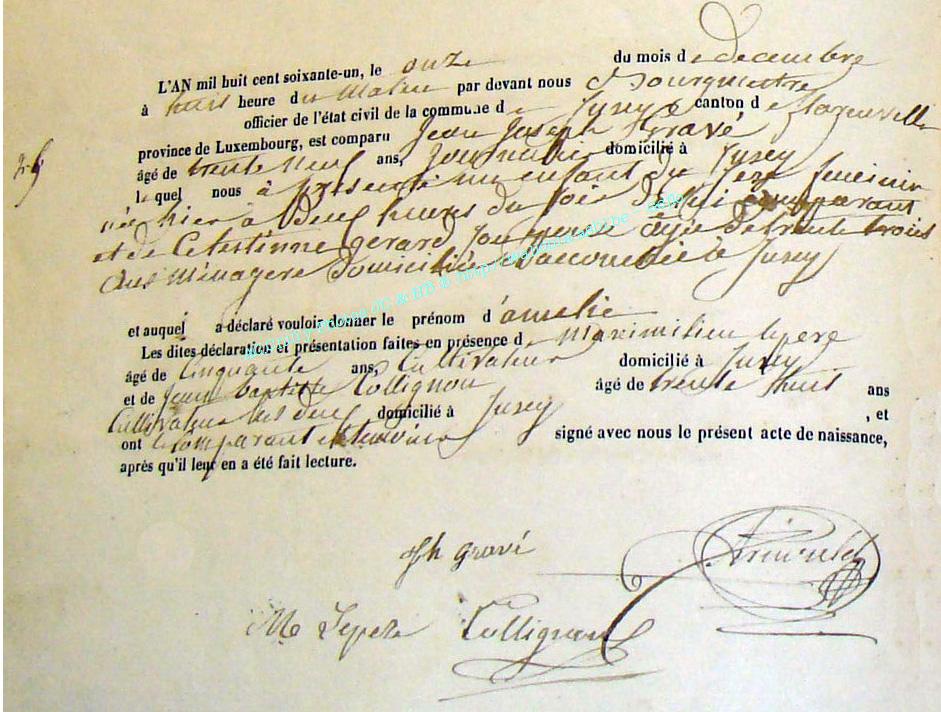 L'AN mil huit cent soixante-un, le onze du mois de decembre
à huit heure du Matin par devant nous Bourgmestre
officier de l'état civil de la commune de Jusey canton de
province de Luxembourg, est comparu Jean Joseph Gravé
âgé de trente neuf ans, Journalier domicilié à Jusey
lequel nous à présenté un enfant du sexe feminin
née hier à Deux heures du soir de lui comparant
et de Celestinne Gerard son epouse âgée de trente trois
ans Ménagere Domiciliée à Jusey
et auquel a déclaré vouloir donner le prénom d'amelie
Les dites déclaration et présentation faites en présence de Maximilien lepere
âgé de Cinquante ans, Cultivateur domicilié à Jusey
et de Jean baptiste Collignon âgé de trente huit ans
Cultivateur les deux domicilié à Jusey , et
ont le comparant et temoins signé avec nous le présent acte de naissance,
après qu'il leur en a été fait lecture.
Jh gravé
M Lepere Collignon